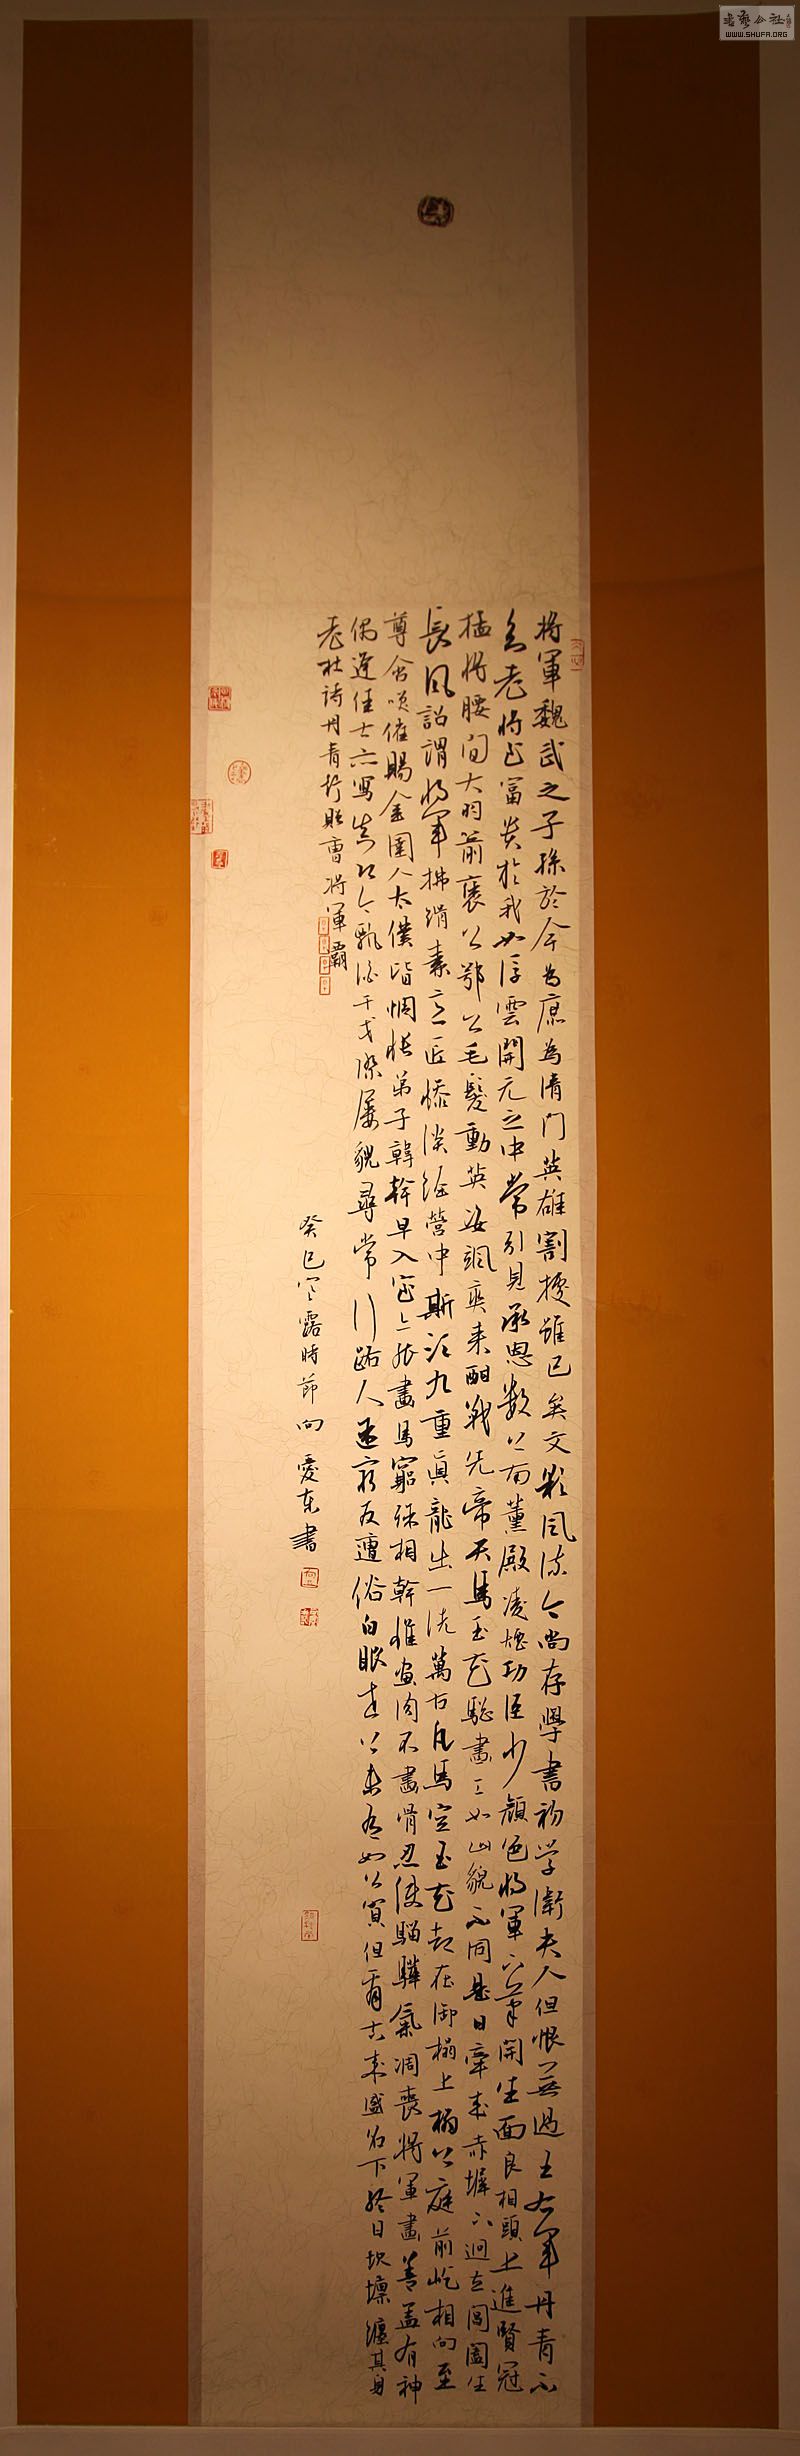 書藝公社
WWW.SHUFA.ORG
將軍魏武之子孫於今為庶為清門英雄割據雖已矣文彩風流今尚存學書初學衛夫人但恨無過王右軍丹青不
知老將至富貴於我如浮雲開元之中常引見承恩數上南薰殿凌煙功臣少顏色將軍下筆開生面良相頭上進賢冠
猛將腰間大羽箭褒公鄂公毛髮動英姿颯爽來酣戰先帝天馬玉花驄畫工如山貌不同是日牽來赤墀下迥立閶闔生
長風詔謂將軍拂絹素意匠慘淡經營中斯須九重真龍出一洗萬古凡馬空玉花却在御榻上榻上庭前屹相向至
尊含笑催賜金圉人太僕皆惆悵弟子韓幹早入室亦能畫馬窮殊相幹惟畫肉不畫骨忍使騮驊氣凋喪將軍畫善蓋有神
偶逢佳士亦寫真即今飄泊干戈際屢貌尋常行路人途窮反遭俗白眼世上未有如公貧但看古來盛名下終日坎壈纏其身
老杜詩丹青引贈曹將軍霸
癸巳寒露時節向愛東書